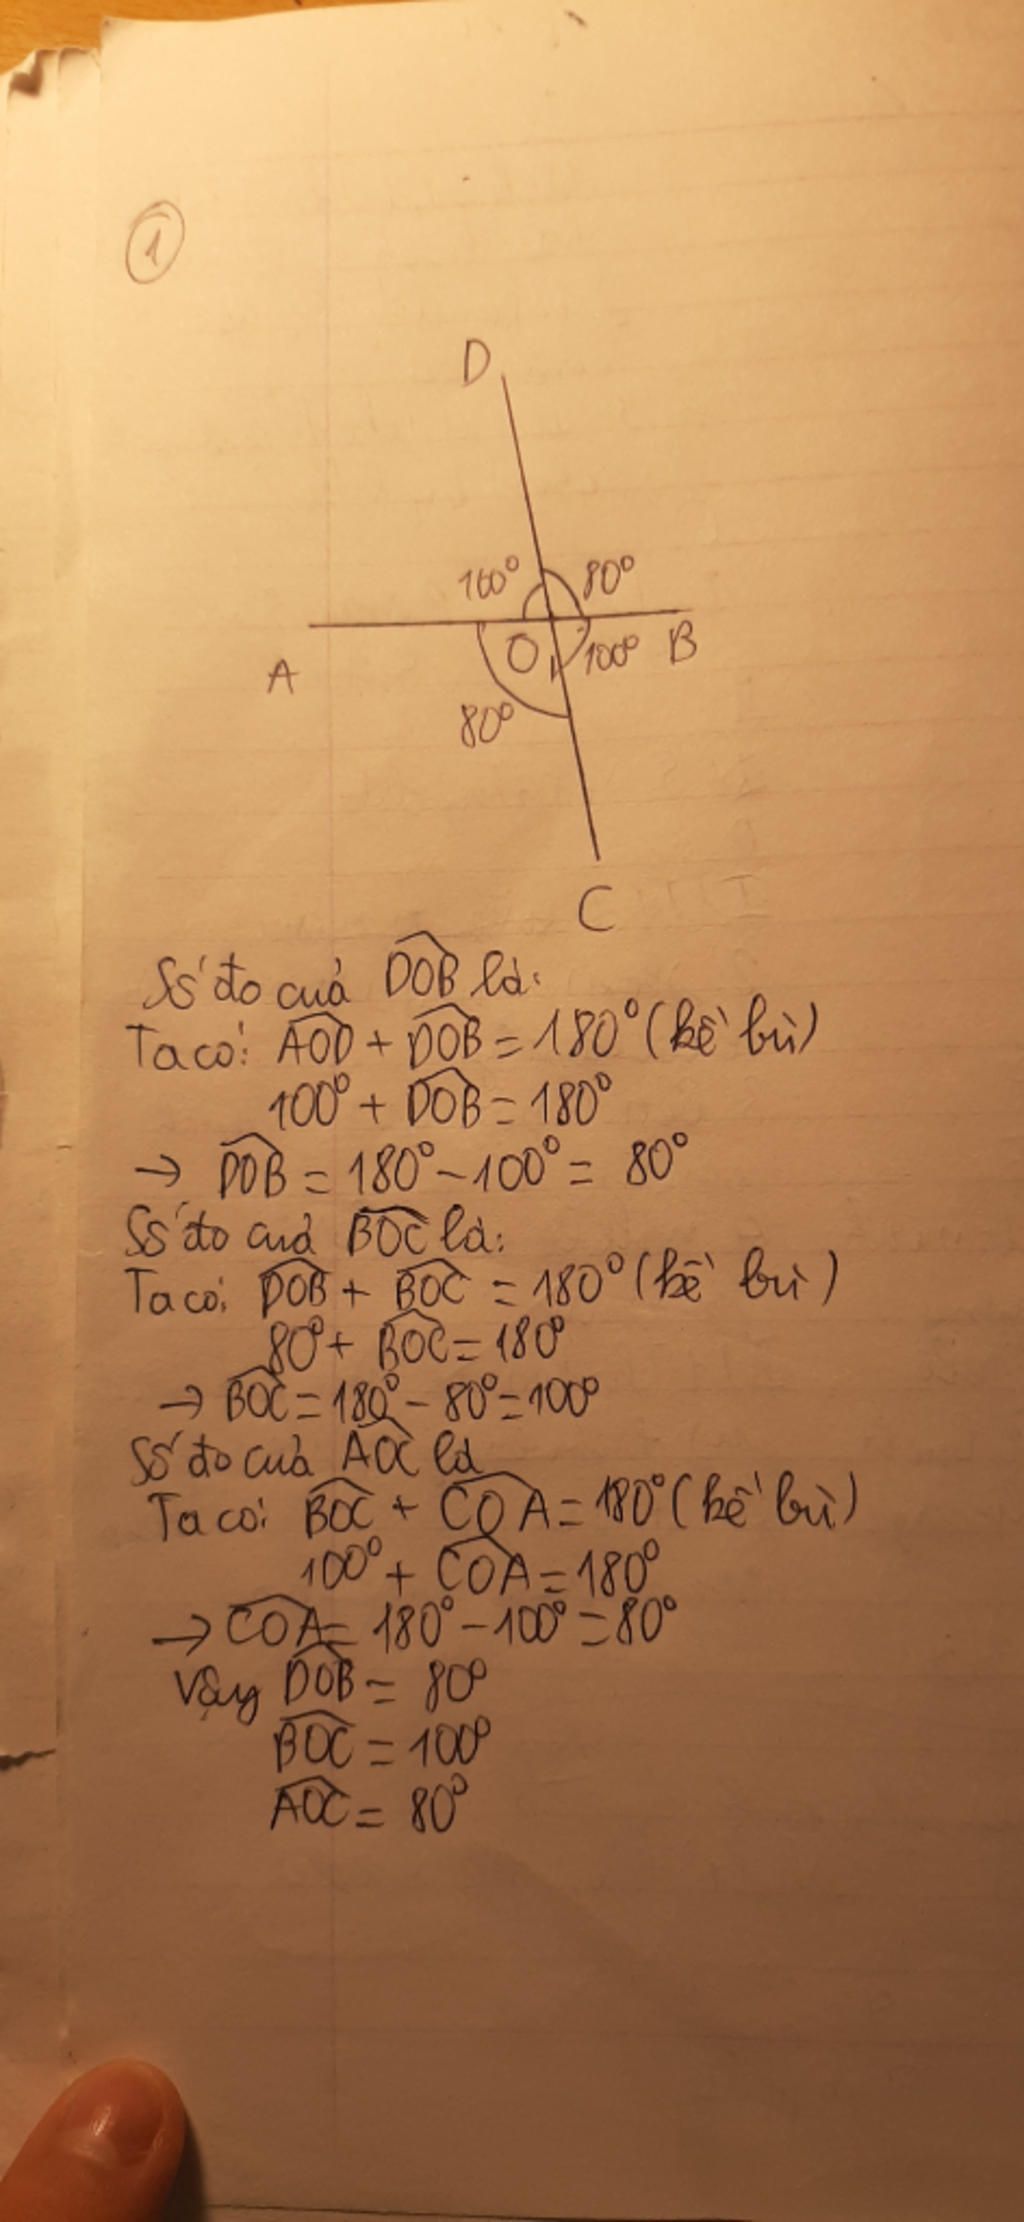 1
D
100° 80°
A O 100° B
80°
C
Số đo của DOB là:
Ta có: AOD + DOB = 180° (kề bù)
100° + DOB = 180°
→ DOB = 180° - 100° = 80°
Số đo của BOC là:
Ta có: DOB + BOC = 180° (kề bù)
80° + BOC = 180°
→ BOC = 180° - 80° = 100°
Số đo của AOC là
Ta có: BOC + COA = 180° (kề bù)
100° + COA = 180°
→ COA = 180° - 100° = 80°
Vậy DOB = 80°
BOC = 100°
AOC = 80°